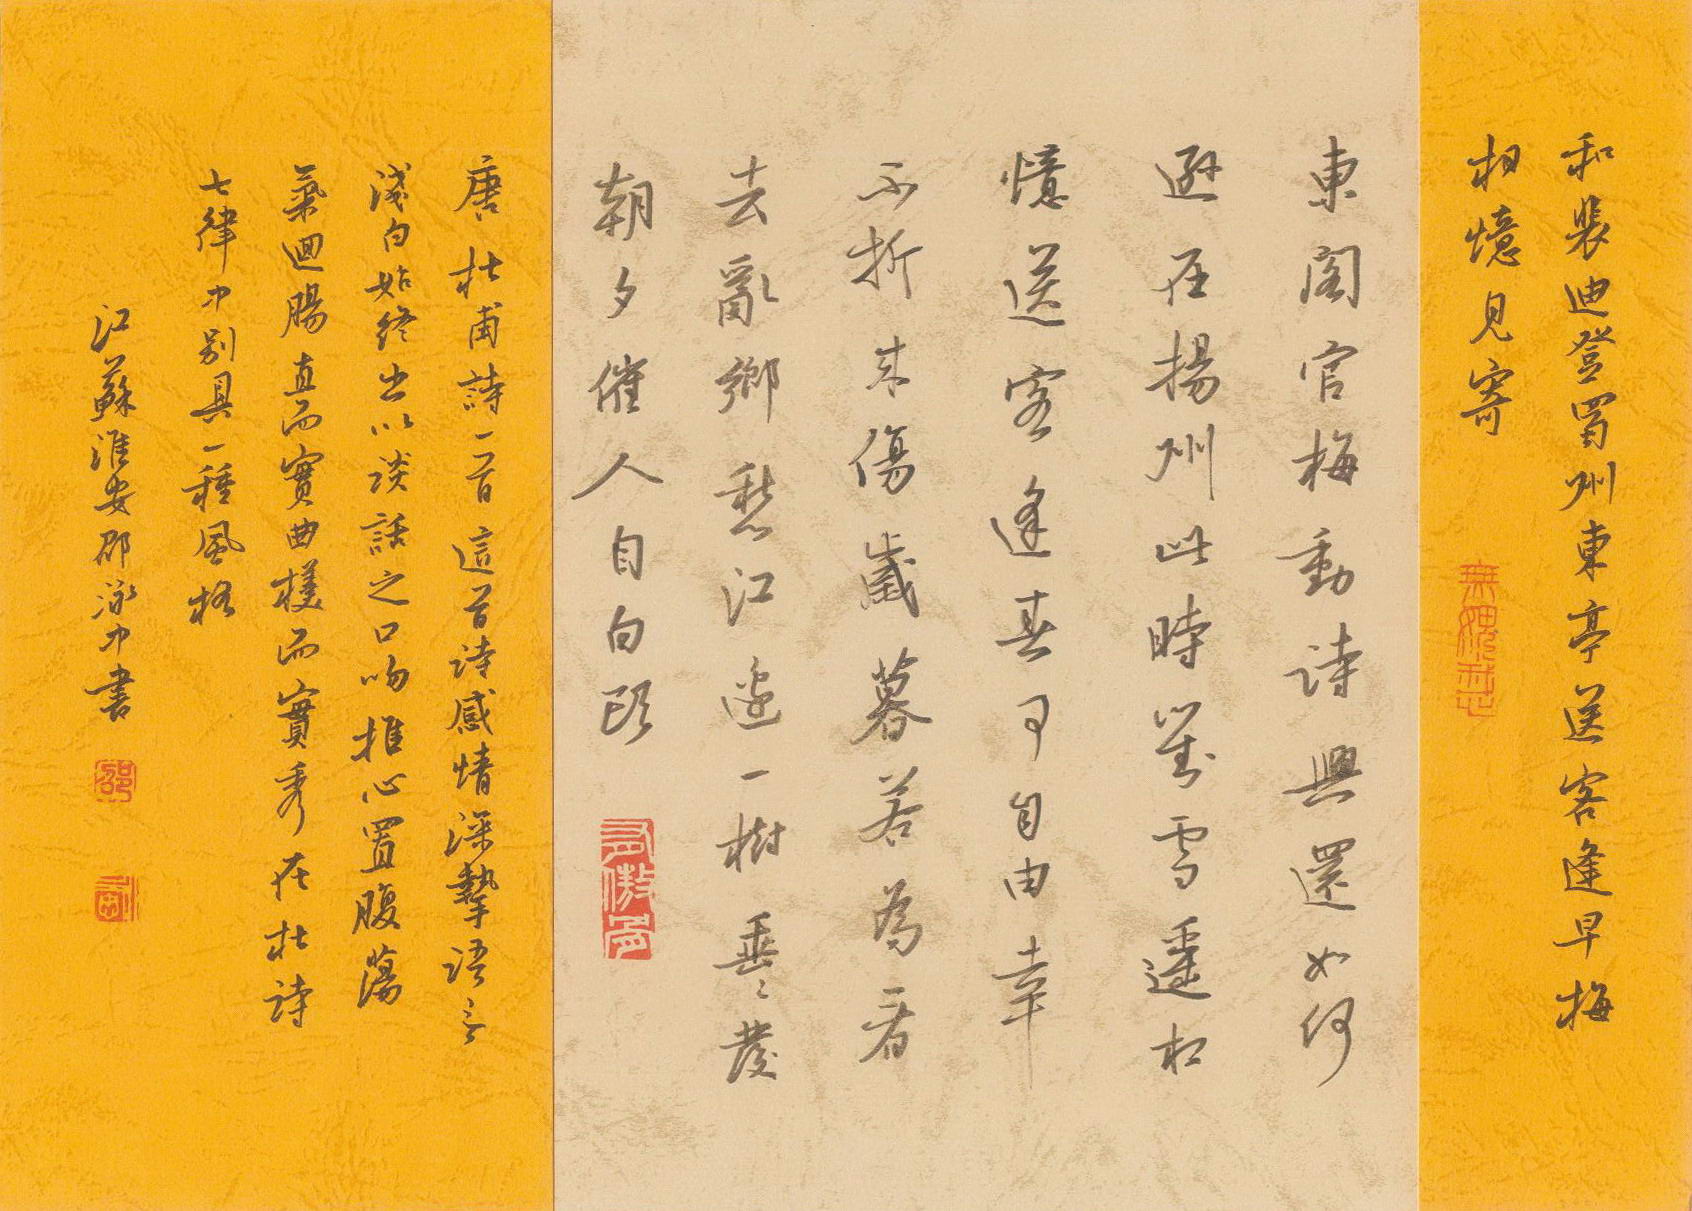 和裴迪登蜀州東亭送客逢早梅
相憶見寄
東閣官梅動詩興還如何
遜在揚州此時對雪遙相
憶送客逢春可自由幸
不折來傷歲暮若為看
去亂鄉愁江邊一樹垂〻發
朝夕催人自白頭
唐杜甫詩一首這首詩感情深摯語言
淺白始終出以談話之口吻推心置腹蕩
氣迴腸直而實曲樸而實秀在杜詩
七律中別具一種風格
江蘇淮安邵泳中書
邵